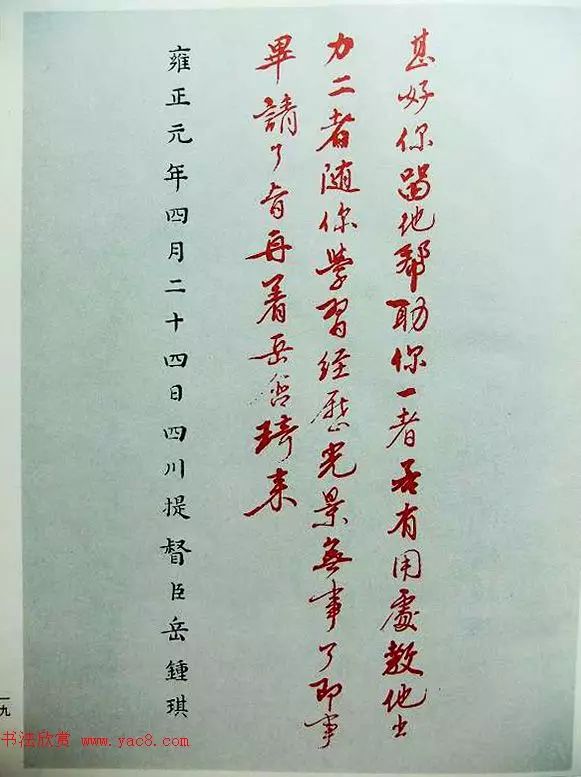 甚好你留他幫助你一者若有用處教他出
力二者随你學習經歷光景無事了即事
畢請了旨再着岳含琦来
雍正元年四月二十四日四川提督臣岳鍾琪
一九
书法欣赏 www.yac8.com